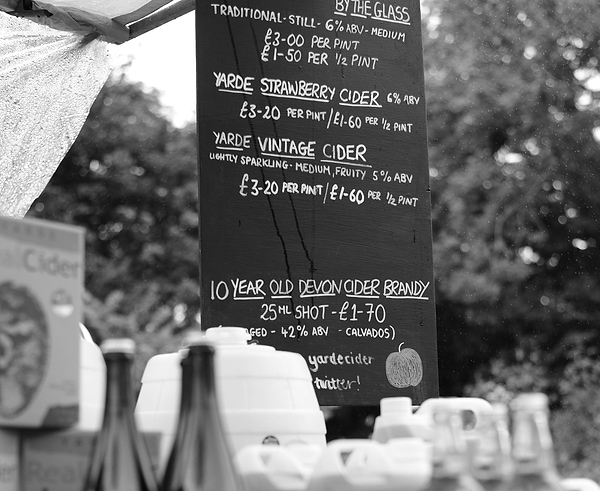 BY THE GLASS
TRADITIONAL-STILL- 6% ABV - MEDIUM
£3-00 PER PINT
£1-50 PER ½ PINT
YARDE STRAWBERRY CIDER 6% ABV
£3-20 PER PINT/£1-60 PER ½ PINT
YARDE VINTAGE CIDER
LIGHTLY SPARKLING - MEDIUM, FRUITY 5% ABV
£3-20 PER PINT/£1-60 PER ½ PINT
10 YEAR OLD DEVON CIDER BRANDY
25ML SHOT - £1-70
GED - 42% ABV - CALVADOS)
yardecider
twitter!
Cider
Real